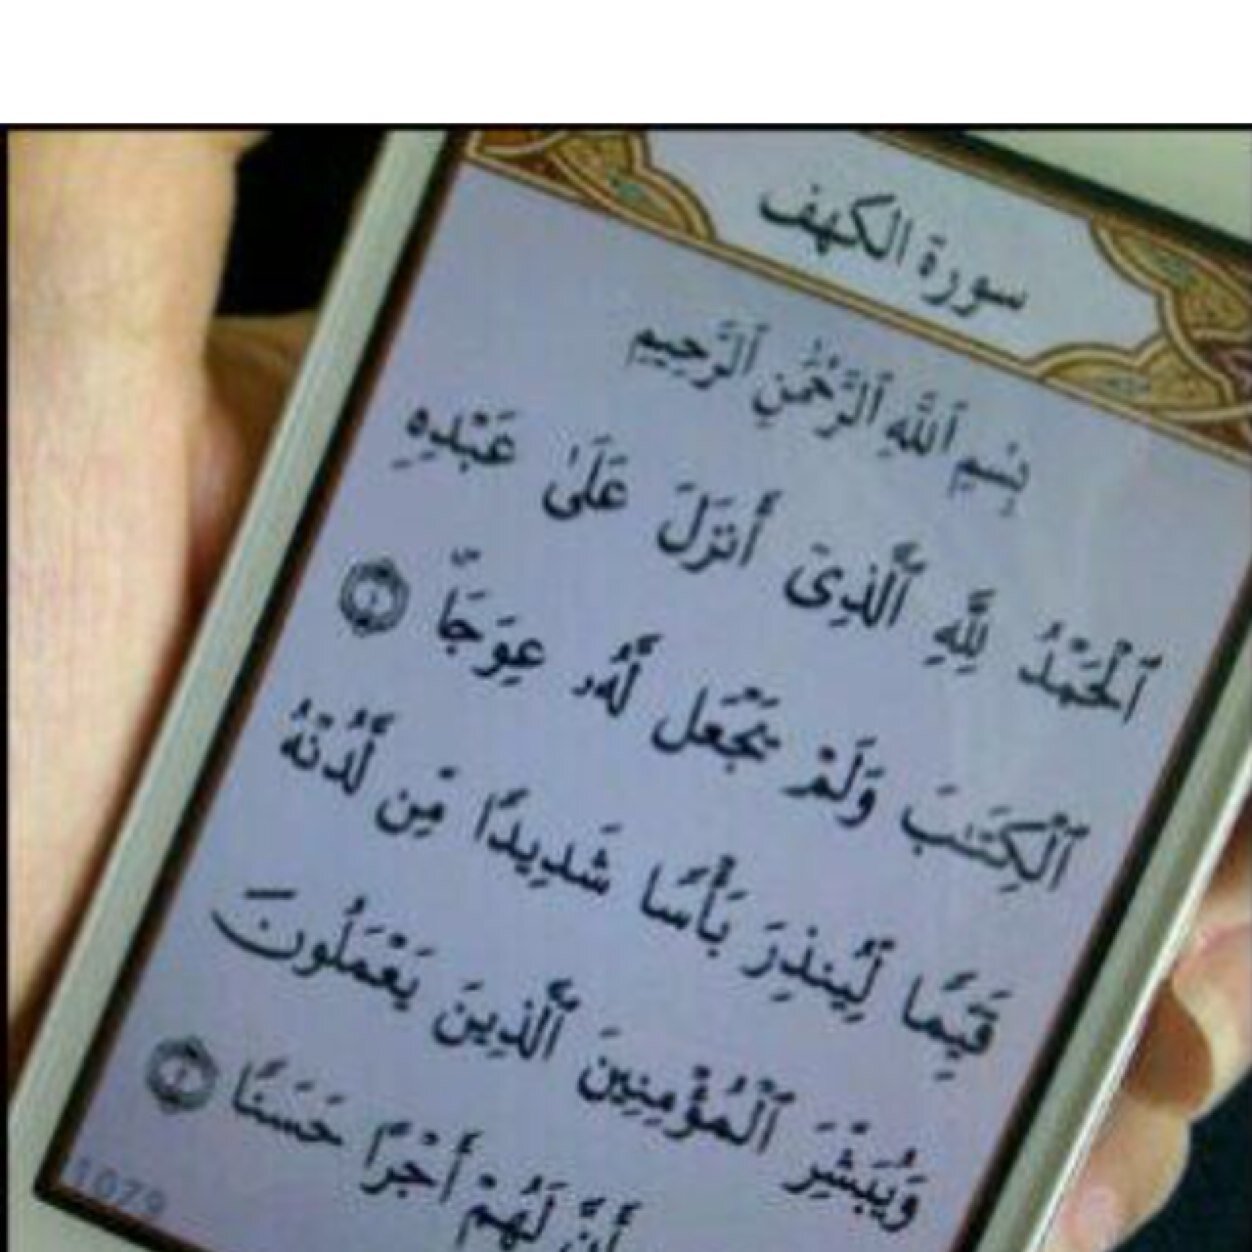 سورة الكهف
بِسْمِ ٱللَّهِ ٱلرَّحْمَٰنِ ٱلرَّحِيمِ
ٱلْحَمْدُ لِلَّهِ ٱلَّذِىٓ أَنزَلَ عَلَىٰ عَبْدِهِ
ٱلْكِتَـٰبَ وَلَمْ يَجْعَل لَّهُۥ عِوَجًا ۜ ١
قَيِّمًا لِّيُنذِرَ بَأْسًا شَدِيدًا مِّن لَّدُنْهُ
وَيُبَشِّرَ ٱلْمُؤْمِنِينَ ٱلَّذِينَ يَعْمَلُونَ
أَنَّ لَهُمْ أَجْرًا حَسَنًا ٢
1079